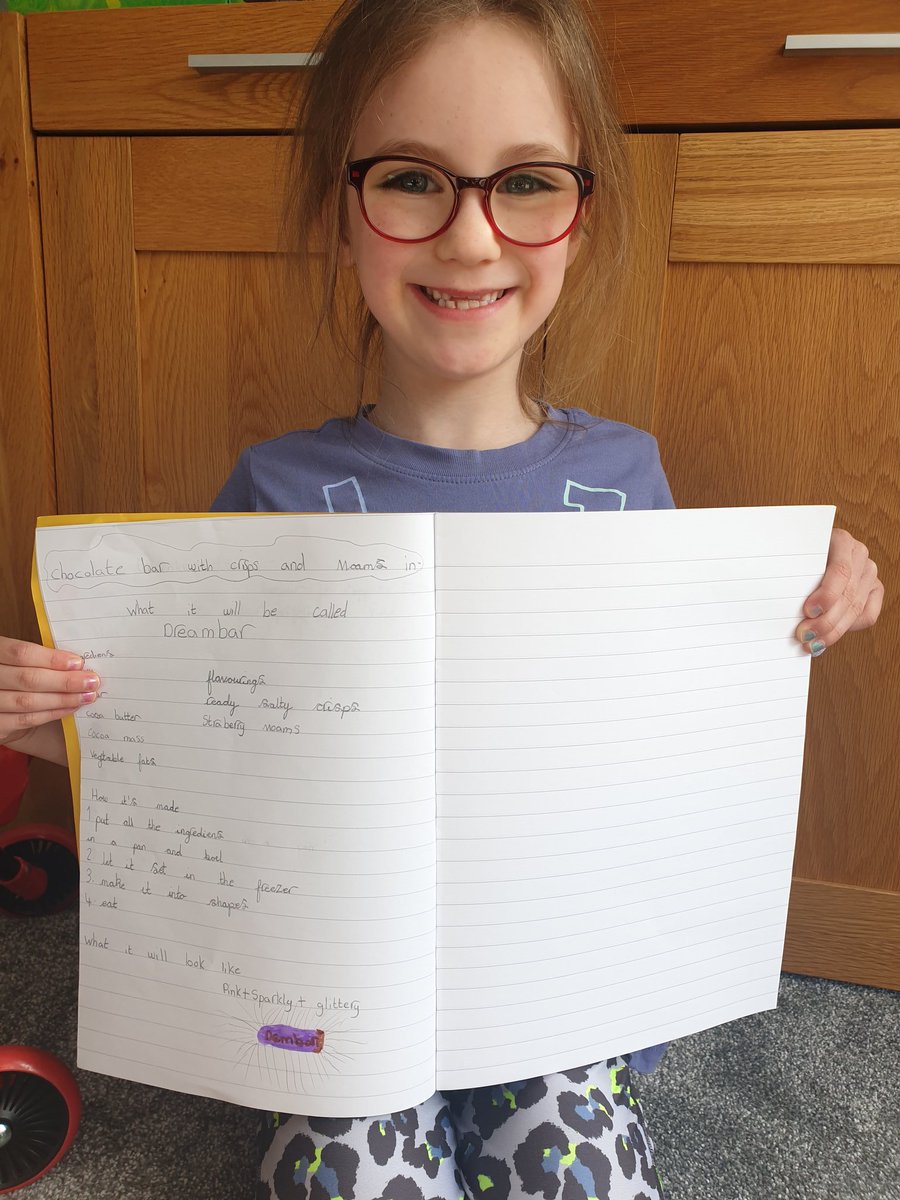 Chocolate bar with crisps and Moams in:-
What it will be called
Dreambar
flavourings
ready salty crisps
Straberry moams
cocoa butter
cocoa mass
vegtable fats
How it's made
1 put all the ingrediens
in a pan and boil
2 let it set in the freezer
3 make it into shapes
4 eat
What it will look like
Pink + Sparkly + glittery